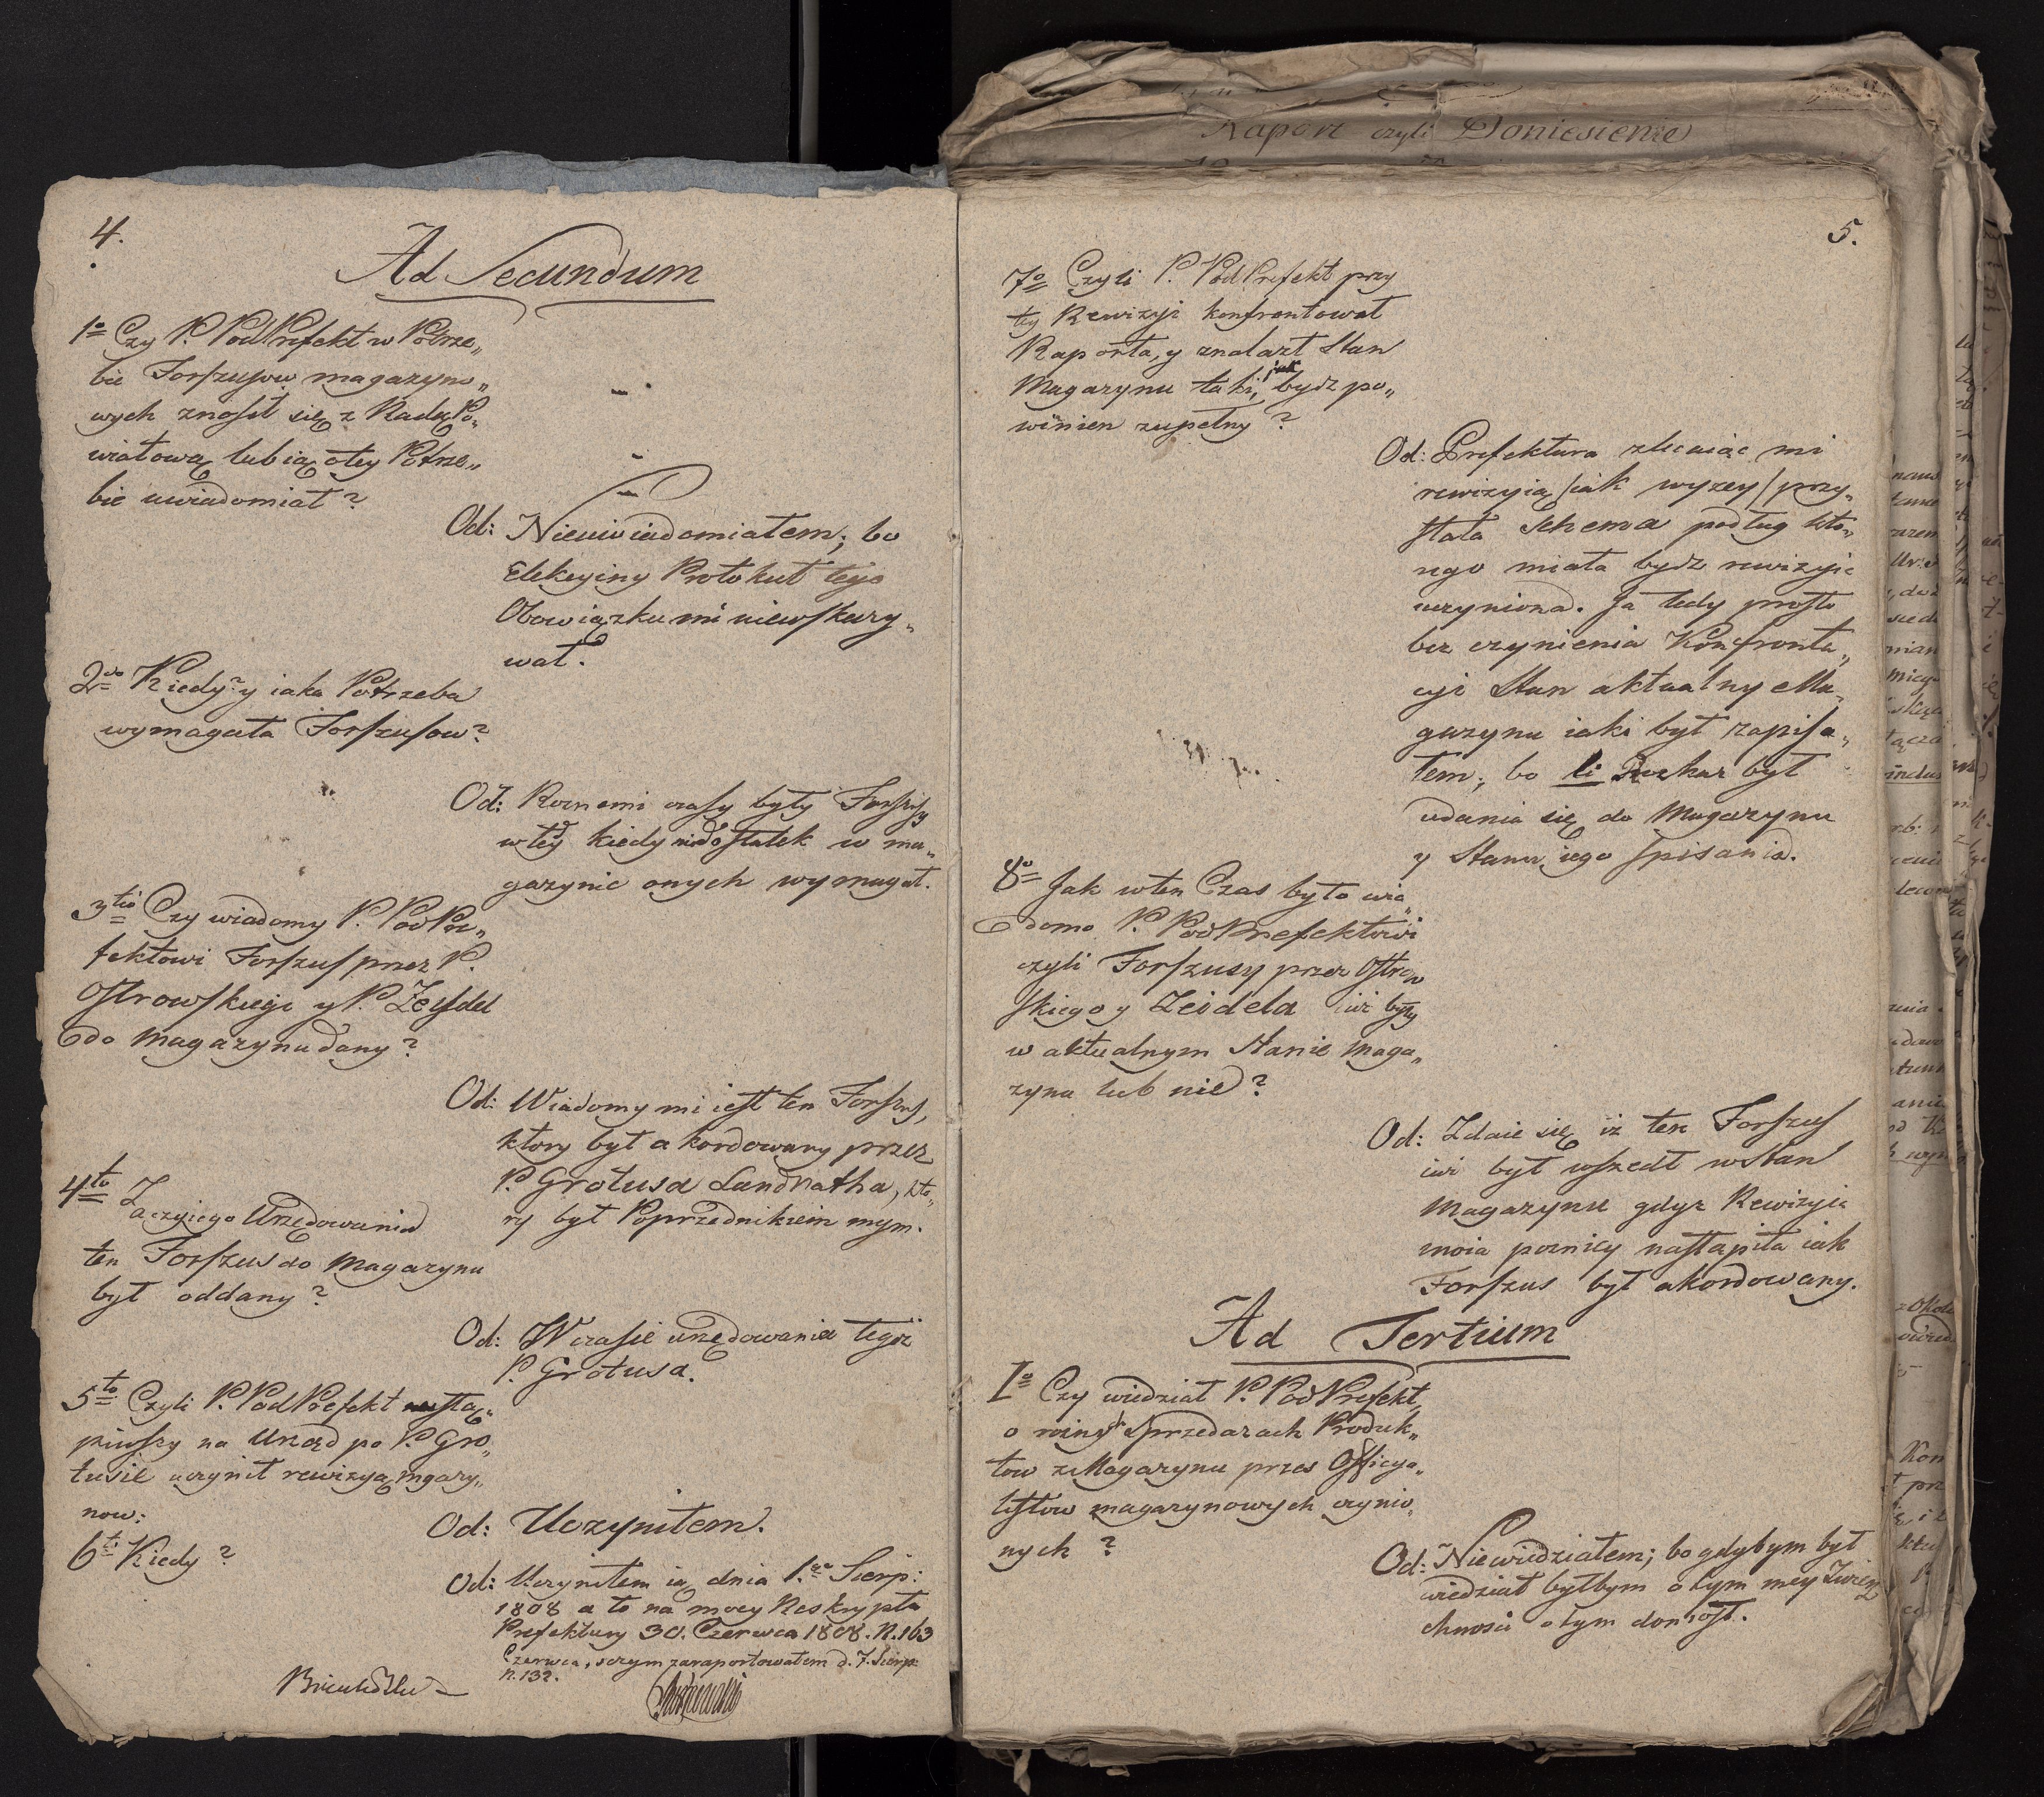 4.
Ad Secundum
1o Czy P. PodPrefekt w Potrze„
bie Forszusow magazyno„
wych znosił się z Radą Po„
wiatową lub ią o tey Potrze„
bie uwiadomiał?
Od: Nieuwiadomiałem, bo
Elekcyiny Protokuł tego
Obowiązku mi niewskazy„
wał.
2do Kiedy? y iaka Potrzeba
wymagała Forszusow?
Od: Roznemi czasy były Forszusy
wtey kiedy niedostatek w ma„
gazynie onych wymagał.
3tio Czy wiadomy P. PodPre„
fektowi Forszus przez P.
Ostrowskiego y P. Zeydel
do magazynu dany?
Od: Wiadomy mi iest ten Forszus,
ktory był akordowany przez
P. Grotusa Landratha, kto„
ry był Poprzednikiem mym.
4to Za czyiego Urzędowania
ten Forszus do Magazynu
był oddany?
Od: W czasie urzędowania tegoż
P. Grotusa.
5to Czyli P. PodPrefekt nastą„
piwszy na Urząd po P. Gro„
tusie uczynił rewizyą mgazy„
now:
Od: Uczyniłem.
6to Kiedy?
Od: Uczyniłem ią dnia 1.go Sierp:
1808 a to na mocy Reskryptu
Prefektury 30. Czerwca 1808. N. 163
Czerwca, sczym zaraportowałem d. 7. Sierp:
N. 132.
5.
7o Czyli P. PodPrefekt przy
tey Rewizyi konfrontował
Raporta, y znalazł Stan
Magazynu taki, jak bydz po„
winien zupełny?
Od: Prefektura zlecaiąc mi
rewizyią /iak wyzey/ przy„
słała Schema podług kto„
rego miała bydz rewizyia
uczyniona. Ja tedy prosto
bez czynienia Konfronta„
cyi Stan aktualny Ma„
gazynu iaki był zapisa„
łem, bo li Rozkaz był
udania się do Magazynu
y Stanu iego spisania.
8o Jak wten Czas było wia„
domo P. PodPrefektowi
czyli Forszusy przez Ostrow
skiego y Zeidela iuż były
w aktualnym Stanie Maga„
zynu lub nie?
Od: Zdaie się iż ten Forszus
iuż był wszedł w Stan
Magazynu gdyż Rewizyia
moia pozniey nastąpiła iak
Forszus był akordowany.
Ad Tertium
1o Czy wiedział P. PodPrefekt
o Sprzedazach Produk„
tow z Magazynu przez Officya„
listow magazynowych czynio„
nych?
Od: Niewiedziałem; bo gdybym był
wiedział byłbym o tym mey Zwierz
chnosci o tym doniosł.
Raport czyli Doniesienie